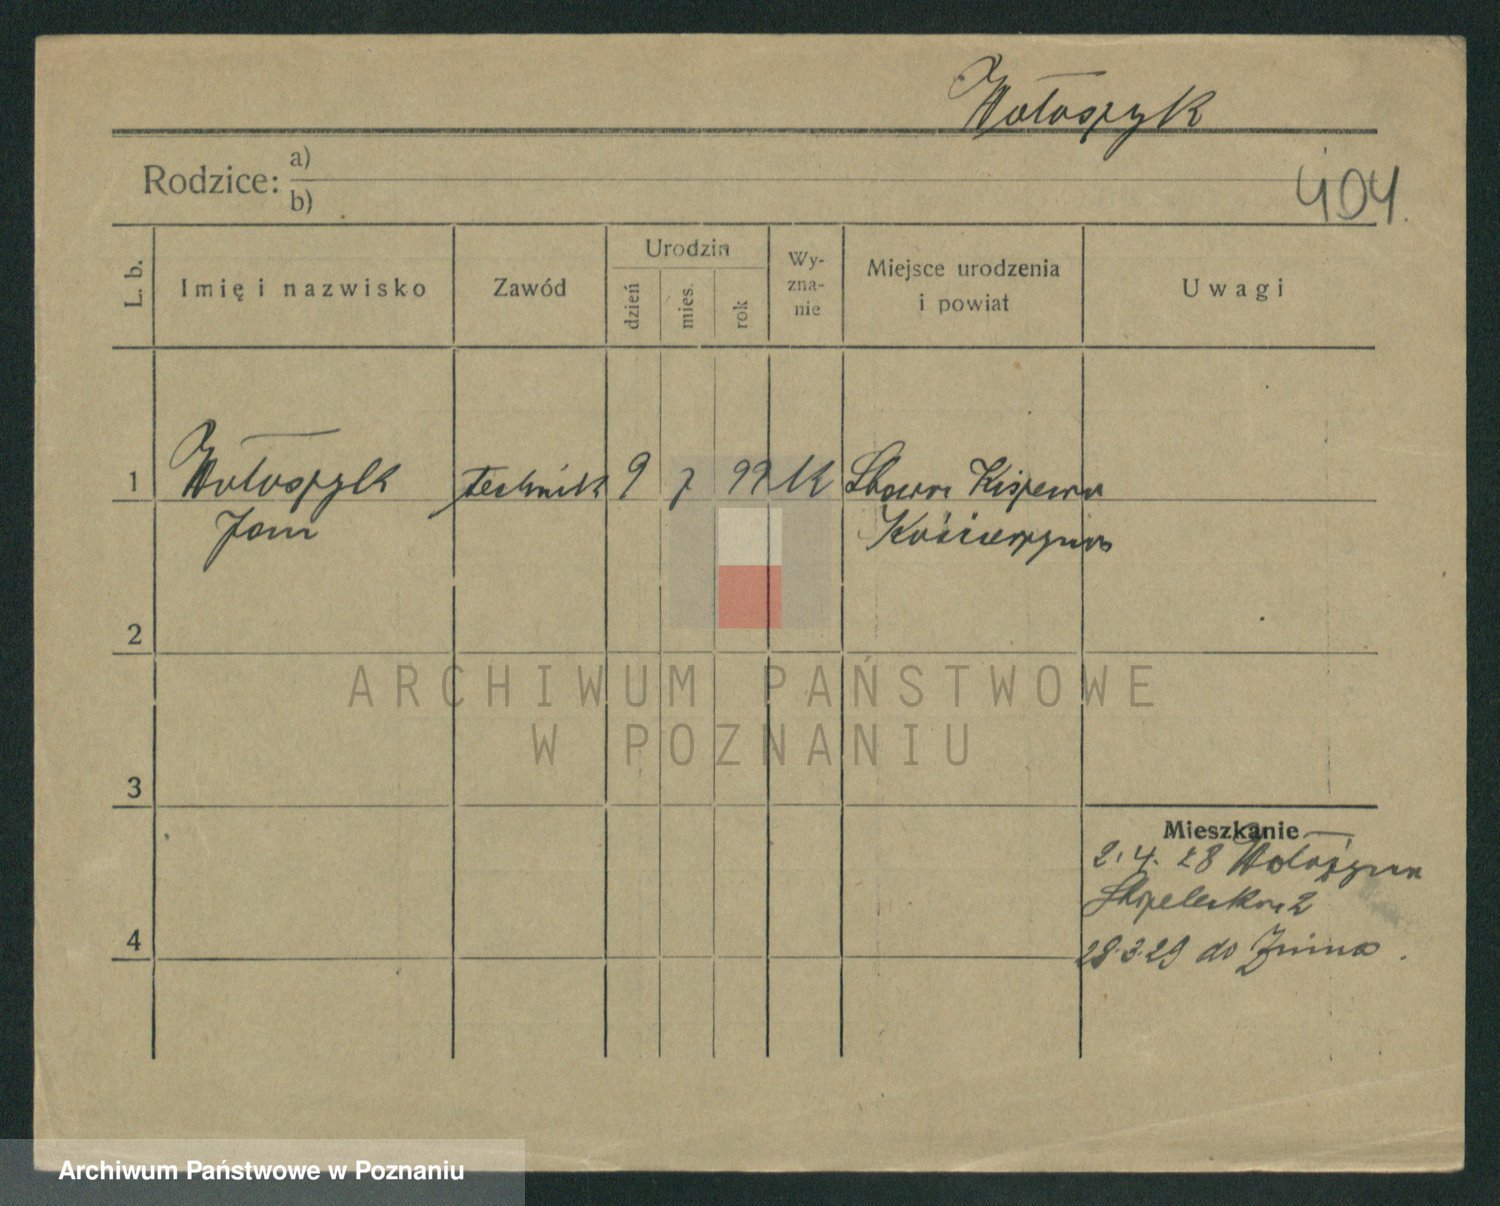 Wołoszyk
Rodzice: a)
b)
404.
L. b.
Imię i nazwisko
Zawód
Urodzin
dzień
mies.
rok
Wy-
zna-
nie
Miejsce urodzenia
i powiat
Uwagi
1 Wołoszyk technik 9 7 99 K Stara Kiszewa
Jan Kościerzyna
2
ARCHIWUM PAŃSTWOWE
W POZNANIU
3
Mieszkanie
2.4.28
2
4
28.3.29 do Żnina.
Archiwum Państwowe w Poznaniu